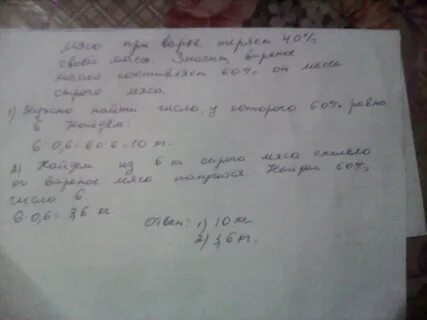 Мясо при варке теряет 40%
своей массы. Значит, вареное
мясо составляет 60% от массы
сырого мяса.
1) Нужно найти число, у которого 60% равно
6 Найдём:
6:0,6=60:6=10 кг.
2) Найдем из 6 кг сырого мяса сколько
кг вареное мясо получится. Найдем 60%
числа 6.
6·0,6=3,6 кг.
Ответ: 1) 10 кг
2) 3,6 кг.